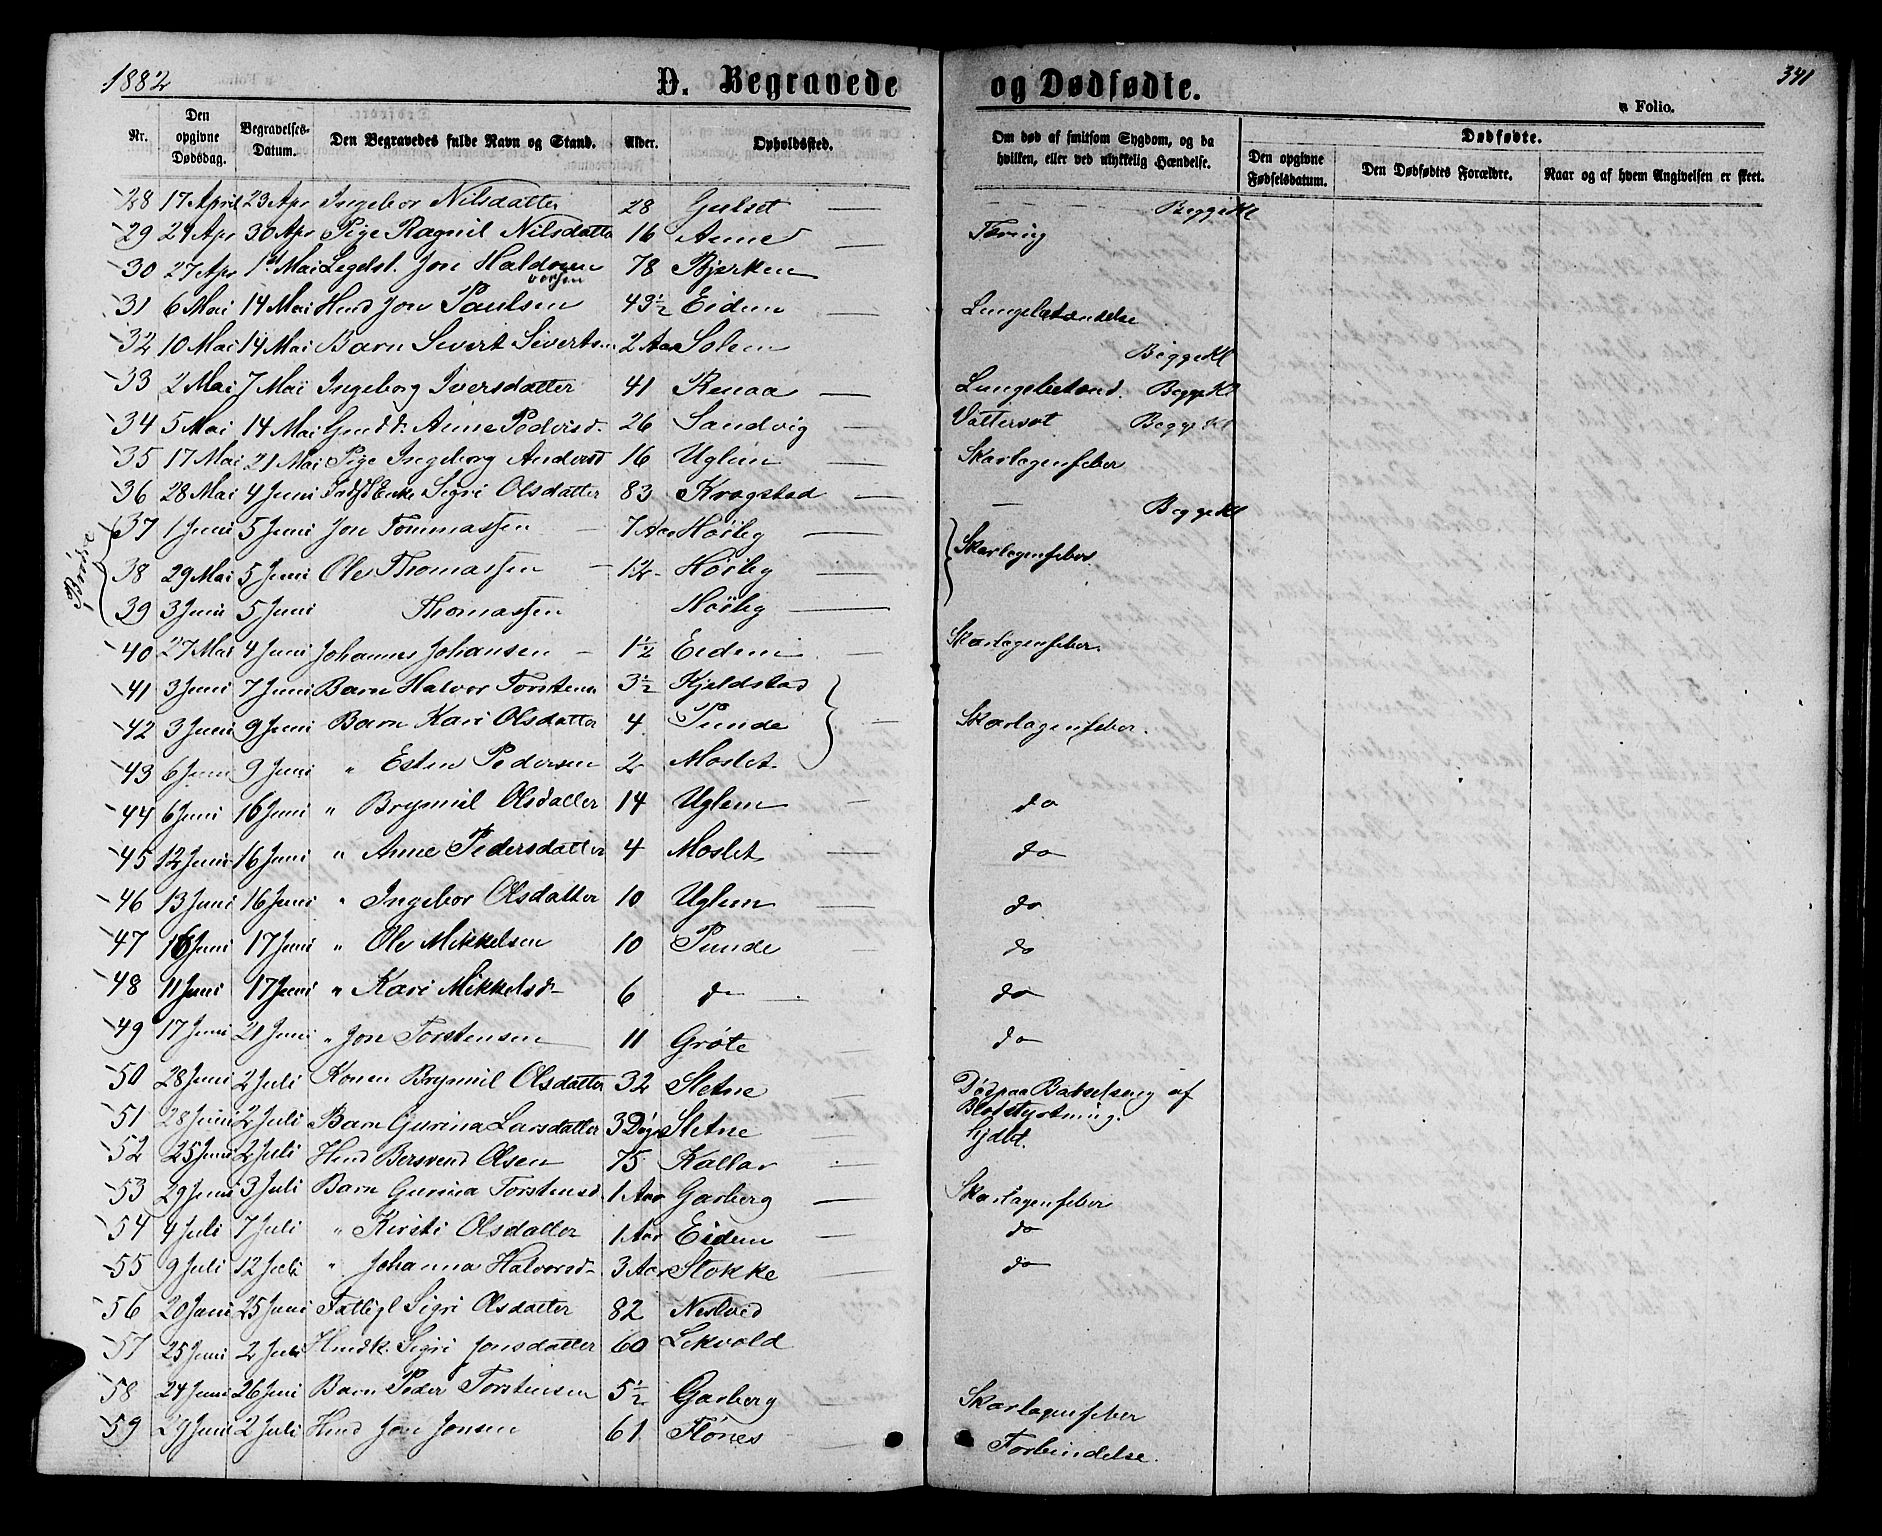 1882
D. Begravede og Dødfødte.
341
a Folio.
Nr. Den opgivne Dødsdag. Begravelses-Datum. Den Begravedes fulde Navn og Stand. Alder. Opholdssted. Om død af smitsom Sygdom, og da hvilken, eller ved ulykkelig Hændelse. Dødfødte. Den opgivne Fødselsdatum. Den Dødfødtes Forældre. Naar og af hvem Angivelsen er skeet.
28 17 April 23 Apr Ingebor Nilsdatter 28 Gulset — Begge Kl
29 24 Apr 30 Apr Pige Ragnil Nilsdatter 16 Aune — Tæring
30 27 Apr 1st Mai Legdsl. Jon Haldosen 78 Bjerken —
vorsen
31 6 Mai 14 Mai Hmd Jon Paulsen 43½ Eidem — Lungebetændelse
32 10 Mai 14 Mai Barn Sivert Sivertsen 2 Aar Solem — Begge Kl
33 2 Mai 7 Mai Ingeborg Iversdatter 41 Renaa — Lungebetænd. Begge Kl
34 5 Mai 14 Mai Anne Pedersd. 26 Sandvig — Vattersot Begge Kl
35 17 Mai 21 Mai Pige Ingeborg Andersd 16 Uglem — Skarlagenfeber
36 28 Mai 4 Juni Enke Sigri Olsdatter 83 Kragstad — — Begge Kl
Brødre
37 1 Juni 5 Juni Jon Tommassen — 7 Aar Høiby — Skarlagenfeber
38 29 Mai 5 Juni Ole Thomassen — 12 Høiby —
39 3 Juni 5 Juni Thomassen Høiby —
40 27 Mai 4 Juni Johannes Johansen — 1½ Eidem — Skarlagenfeber.
41 3 Juni 7 Juni Barn Halvor Torstens 3½ Kjeldstad
42 3 Juni 9 Juni Barn Kari Olsdatter 4 Punde — Skarlagenfeber.
43 6 Juni 9 Juni " Esten Pedersen 2 Moslet
44 6 Juni 16 Juni " Brynnil Olsdatter 14 Uglem — do
45 12 Juni 16 Juni " Anne Pedersdatter 4 Moslet — do
46 13 Juni 16 Juni " Ingebor Olsdatter 10 Uglem — do
47 16 Juni 17 Juni " Ole Mikkelsen 10 Punde do
48 11 Juni 17 Juni " Kari Mikkelsd 6 do — do
49 17 Juni 21 Juni " Jon Torstensen 11 Grøte do
50 28 Juni 2 Juli Konen Brynnil Olsdatter 32 Sletne Død paa Barselseng af Blodstyrtning.
51 28 Juni 2 Juli Barn Gurina Larsdatter 3 Dage Sletne — hjdbt.
52 25 Juni 2 Juli Hmd Bersvend Olsen 75 Kallar —
53 29 Juni 3 Juli Barn Gurina Torstensd. 1 Aar Garberg — Skarlagenfeber
54 4 Juli 7 Juli " Kirsti Olsdatter 1 Aar Eidem — do
55 9 Juli 12 Juli " Johanna Halvorsd 3 Aar Stokke — do
56 20 Juni 25 Juni Fattigl Sigri Olsdatter 82
57 25 Juni 2 Juli Hmdk. Sigri Jonsdatter 60 Lekvold
58 24 Juni 26 Juni Barn Peder Torstensen 5½ Garberg — Skarlagenfeber
59 29 Juni 2 Juli Hmd Jon Jonsen 61 Flønes — Forbindelse.